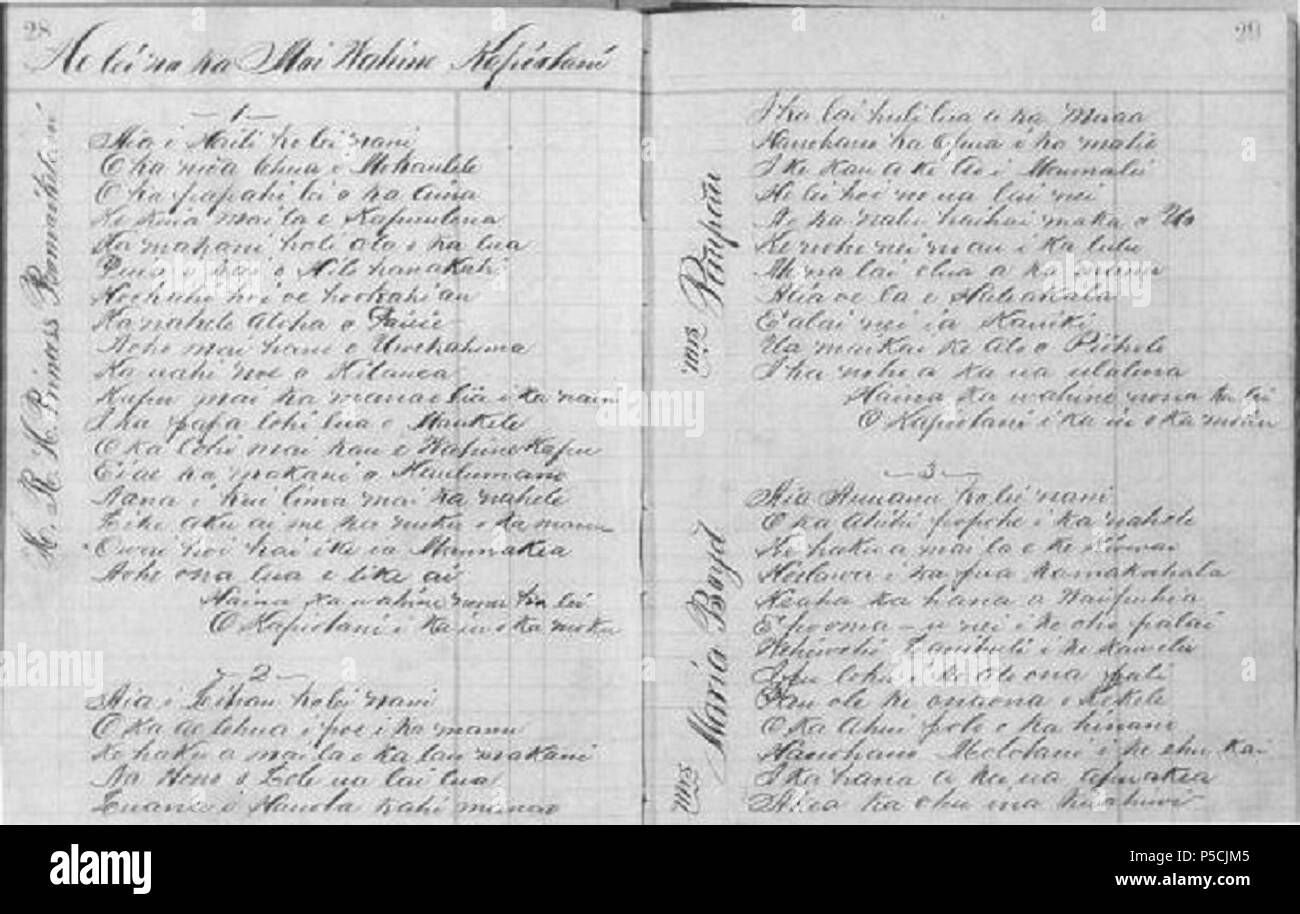 28
He lei no ka Moi Wahine Kapiolani
H. R. H. Princess
1
Aia i Haili ko lei nani
O ka lehua o Mokaulele
O ka papahi lei o ka aina
Ke kuia mai la e Kapuulena
Ka makani hali ala o ka lua
o kai o Hilo hanakahi
Hookahi hoi oe hookahi au
Ka nahele aloha o
Aohe mai kani o Uwekahuna
Ka uahi noe o Kilauea
Kupu mai ka manao ia i ka
I ka papa lohi lua o Maukele
O ka lohi mai kau e Wahinekapu
Eiae ka makani o Haulumano
Nana i kui lima mai ka nahele
Liki aku ai me ka muku o ka manu
Owai hoi kai ike ia Maunakea
Aohe ona lua e like ai
Haina ka wahine nona ka lei
O Kapiolani i ka iu o ka moku
2
Aia i Lihau ko lei nani
O ka ae lehua i poe i ka manu
Ke haku a mai la e ka lau makani
Na Hono o Lele ua lai lua
Luana i Hauola kahi manao
29
Mrs Paupau
I ka lai huli lua a ka Maaa
Hanohano ka lehua i ka malie
I ke kau a ke ao i Maunalei
He lei hoi no ua lai nei
Ae ka nalu haihai maka o Uo
Ke noho nei mau i ka lulu
Mi na lai elua a ka manu
Aia oe la e Haleakala
E alai nei ia Kauiki
Ua maikai ke alo o Piiholo
I ka noho a ka ua ulalena
Haina ka wahine nona ka lei
O Kapiolani i ka iu o ka moku
Mrs Maria Boyd
3
Aia Nuuanu ko lei nani
O ka ahihi popohe i ka nahele
Ke haku a mai la e ke kiowai
Hoolawa i ka pua kamakahala
Keaha ka hana a Waipuhia
E pooma-u nei i ke oho palai
Lanihuli i ke kawelu
lohu i ke alo ona pali
Pau ole ke onaona i Kekele
O ka ahui polo o ka hinano
Hanohano Mololani i ke ehu kai
I ka hana a ka ua apuakea
Akea ka ohu ma ke kuahiwi
alamy
Image ID: P5CJM5
www.alamy.com